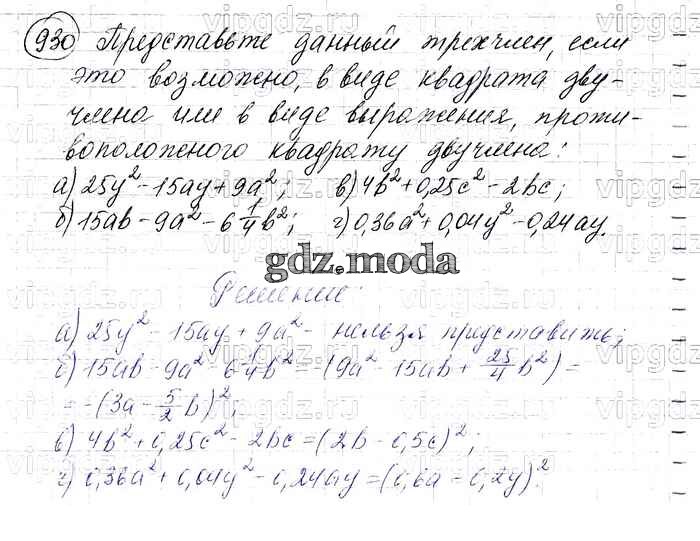 930 Представьте данный трехчлен, если
это возможно, в виде квадрата дву-
члена или в виде выражения, проти-
воположного квадрату двучлена:
а) 25y² - 15ay + 9a²; в) 4b² + 0,25c² - 2bc;
б) 15ab - 9a² - 6 1/4 b²; г) 0,36a² + 0,04y² - 0,24ay.
gdz.moda
Решение:
а) 25y² - 15ay + 9a² - нельзя представить;
б) 15ab - 9a² - 6 1/4 b² = -(9a² - 15ab + 25/4 b²) =
= -(3a - 5/2 b)²;
в) 4b² + 0,25c² - 2bc = (2b - 0,5c)²;
г) 0,36a² + 0,04y² - 0,24ay = (0,6a - 0,2y)².